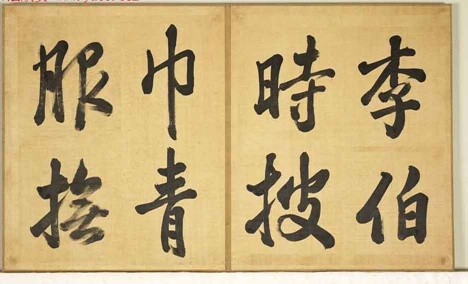 李伯
時披
巾青
服撫